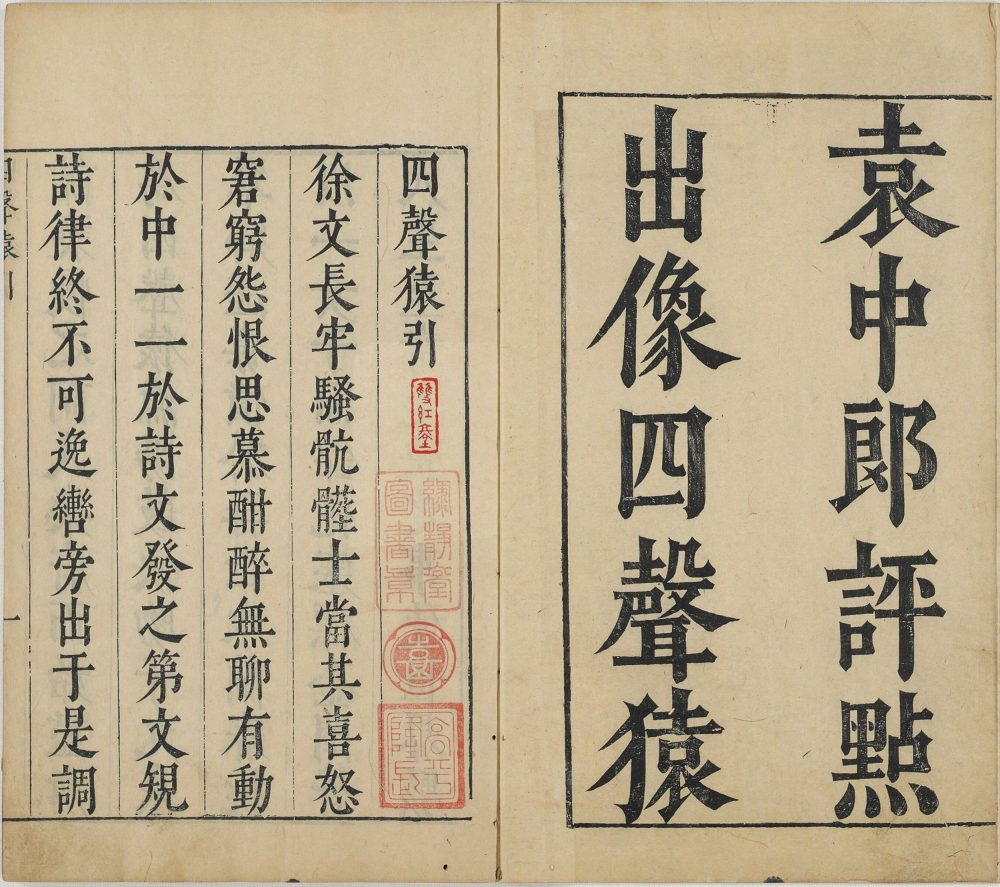 袁中郎評點
出像四聲猿
四聲猿引
雙紅堂
徐文長牢騷骯髒士當其喜怒
窘窮怨恨思慕酣醉無聊有動
於中一一於詩文發之第文規
詩律終不可逸轡旁出于是調
四聲猿引
一